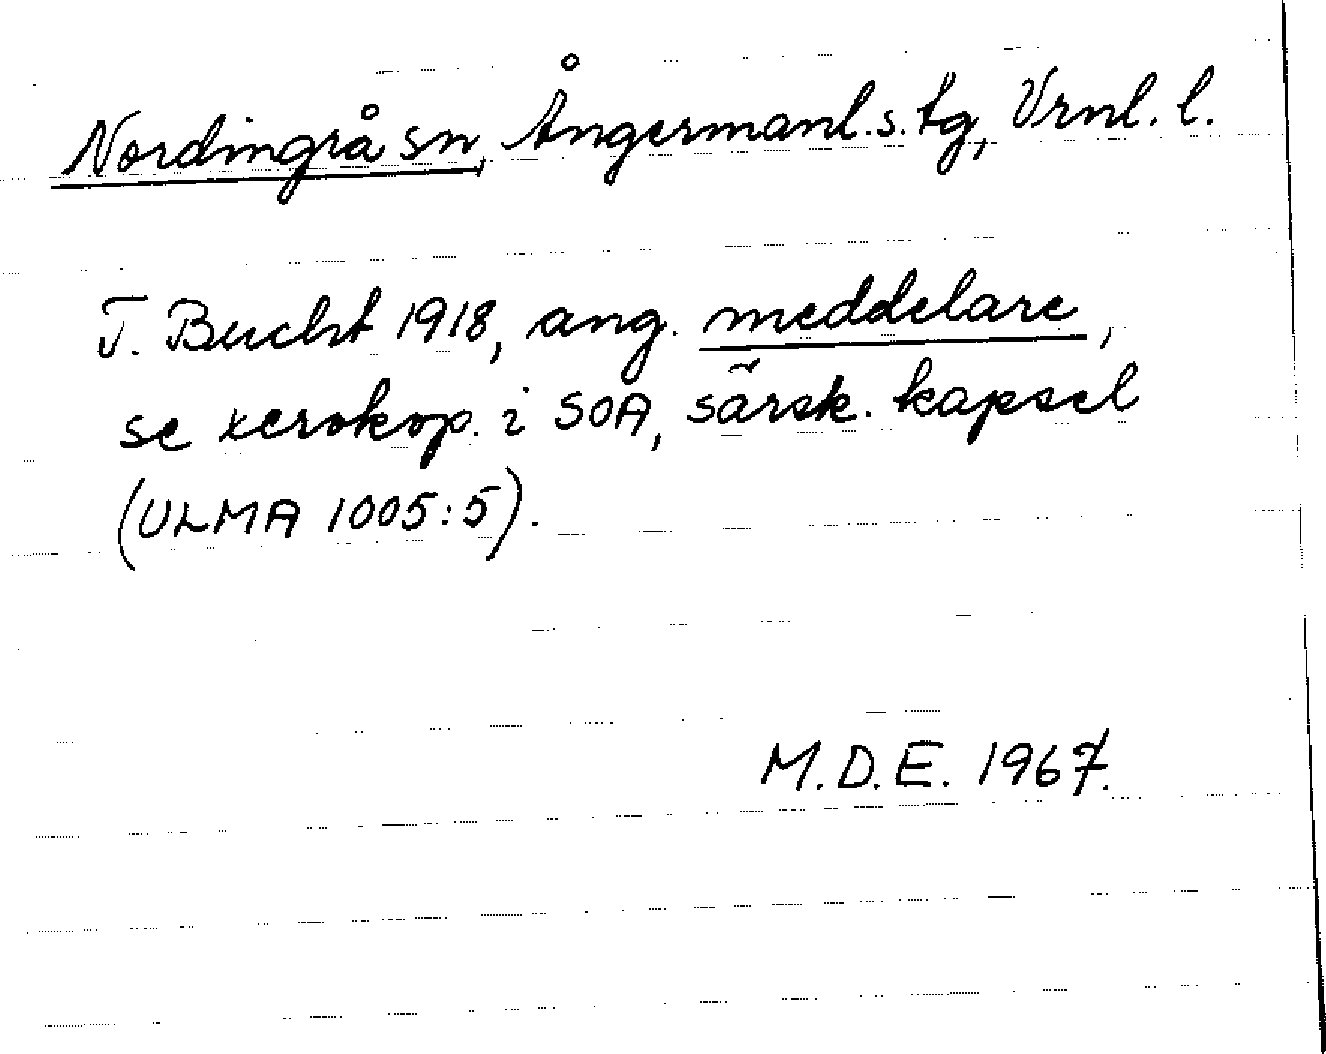 Nordingrå sn, Ångermanl.s.tg, Vrnl. l.
T. Bucht 1918, ang. meddelare,
se xerokop. i SOA, särsk. kapsel
(ULMA 1005:5).
M.D.E. 1967.